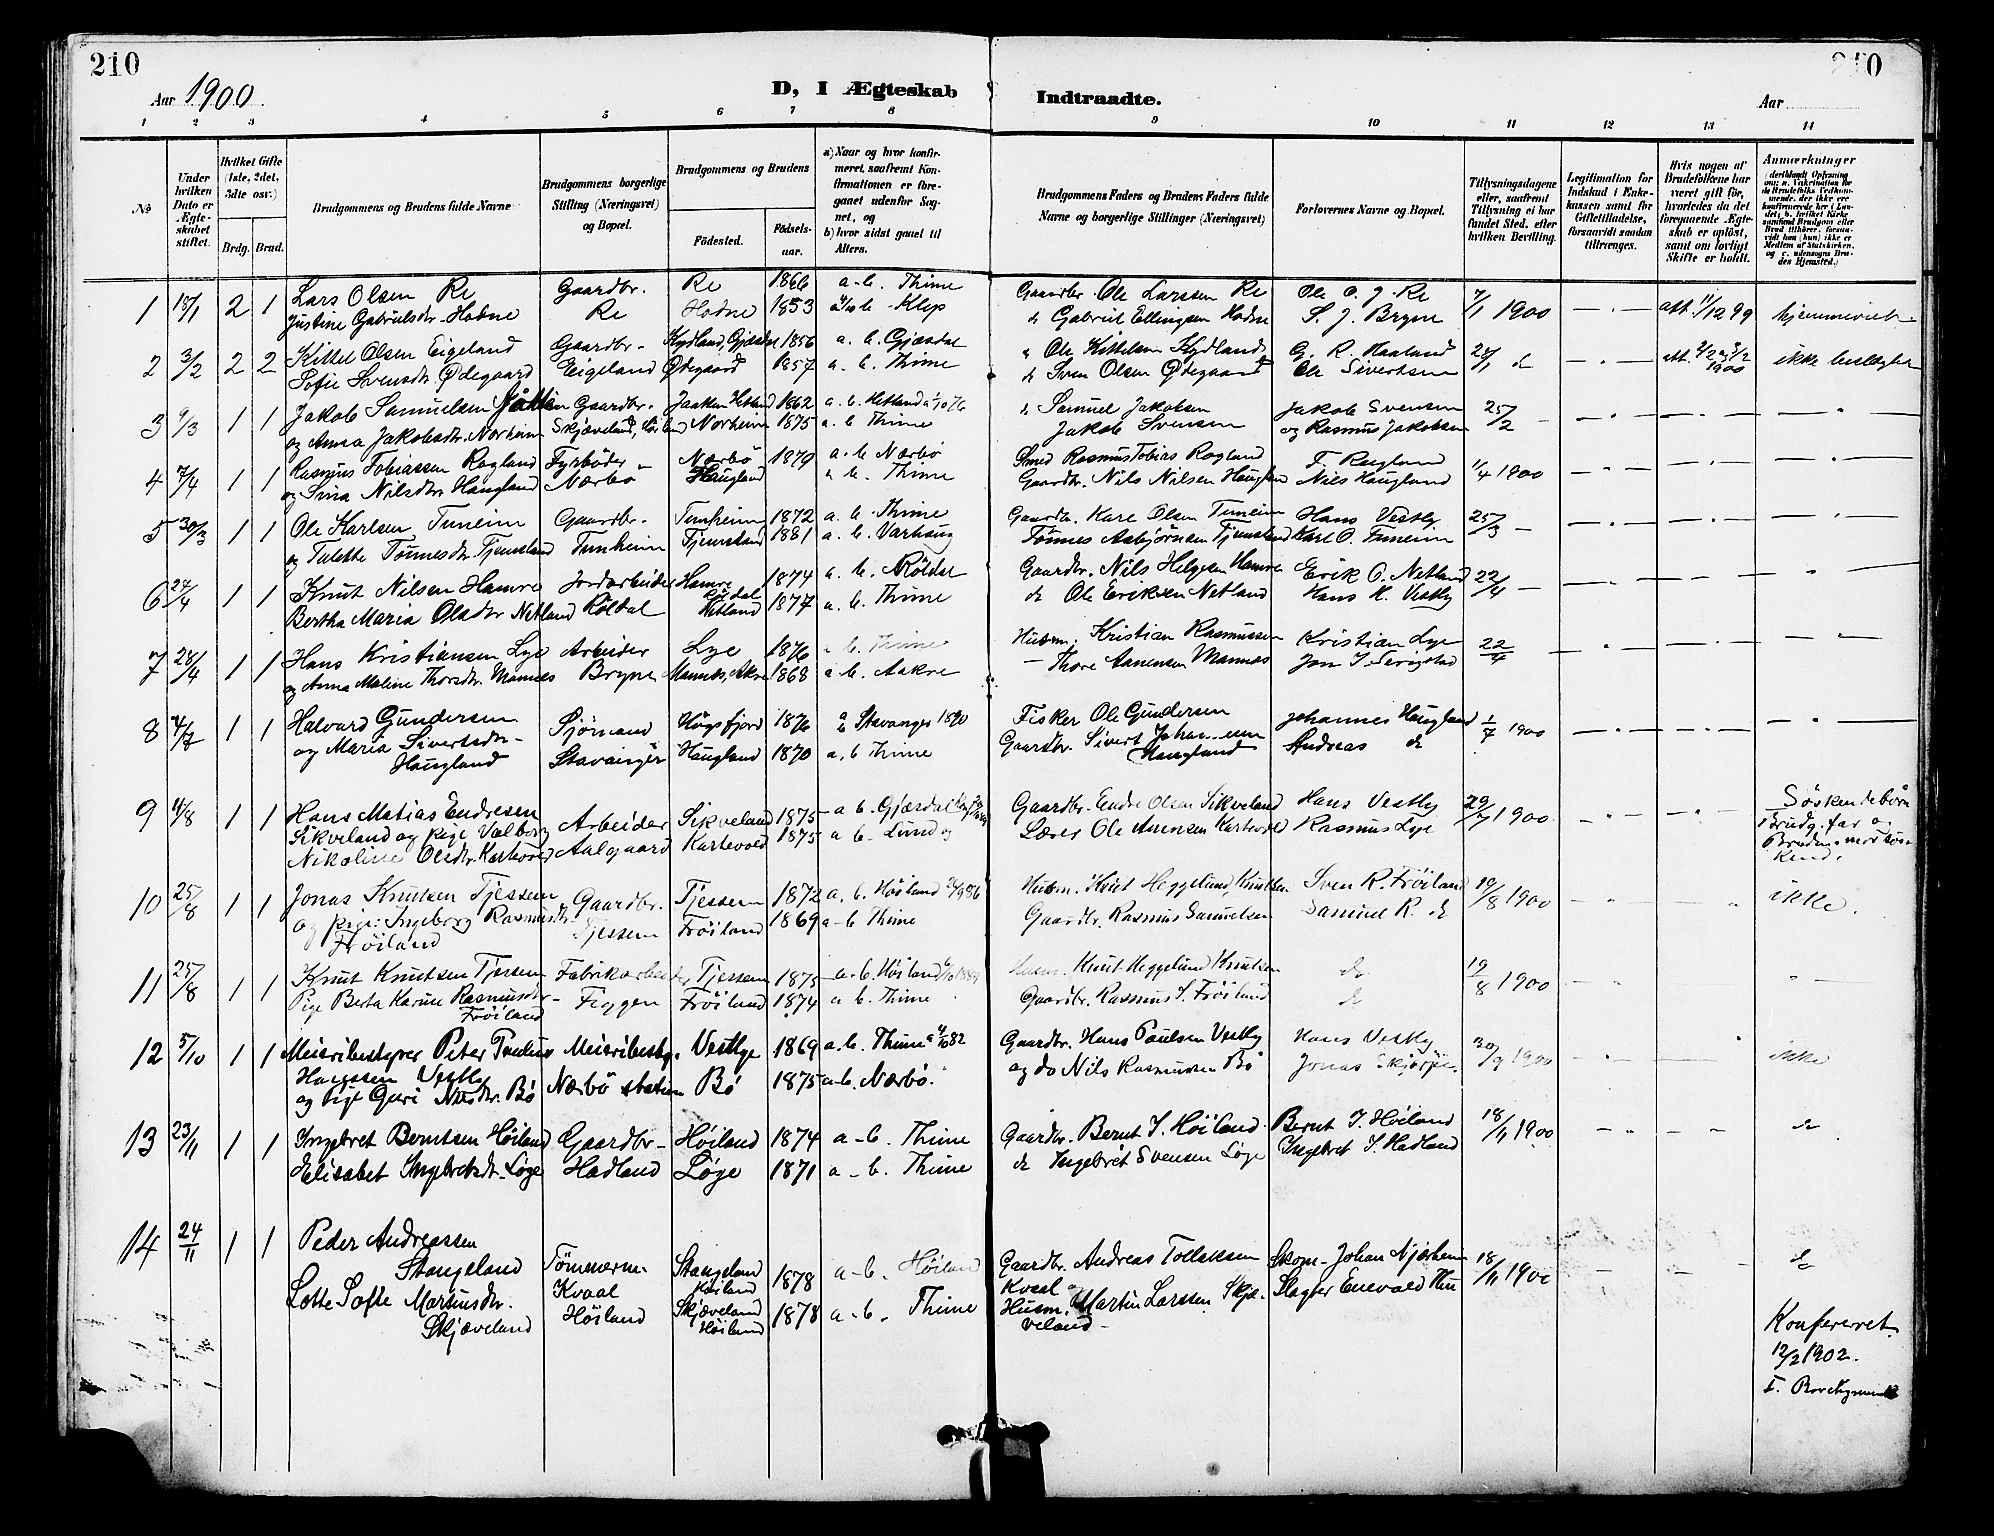 210
210
Aar 1900.
D, I Ægteskab Indtraadte.
Aar
1 2 3 4 5 6 7 8 9 10 11 12 13 14
No
Under hvilken Dato er Ægteskabet stiftet.
Hvilket Gifte (1ste, 2det, 3dte osv.)
Brdg. Brud.
Brudgommens og Brudens fulde Navne
Brudgommens borgerlige Stilling (Næringsvei) og Bopæl.
Brudgommens og Brudens
Fødested.
Fødselsaar.
a) Naar og hvor konfirmeret, saafremt Konfirmationen er foregaaet udenfor Sognet, og
b) hvor sidst gaaet til Alters.
Brudgommens Faders og Brudens Faders fulde Navne og borgerlige Stillinger (Næringsvei)
Forlovernes Navne og Bopæl.
Tillysningsdagene eller, saafremt Tillysning ei har fundet Sted, efter hvilken Bevilling.
Legitimation for Indskud i Enkekassen samt for Giftetilladelse, forsaavidt saadan tiltrænges.
Hvis nogen af Brudefolkene har været gift før, hvorledes da det foregaaende Ægteskab er opløst, samt om lovligt Skifte er holdt.
Anmærkninger
1 18/1 2 1 Lars Olsen Re Gaardbr. Re 1866 a-b. Thime Gaardbr. Ole Larssen Re Ole O. J. Re 7/1 1900 att. 1/12 99 hjemmeviet
Justine Gabrielsdtr. Hodne Re Hodne 1853 Klep do Gabriel Ellingsen Hodne S. J. Bryne
2 3/2 2 2 Kittel Olsen Eigeland Gaardbr. Kydland, Gjæsdal 1856 a. b. Gjæsdal Ole Kittelsen Kydland G. R. Haaland 28/1 do ikke beslægtet
Sofie Svensdtr. Ødegaard Eigeland Ødegaard 1857 a. b. Thime do Sven Olsen Ødegaard Ole Sivertsen
3 9/3 1 1 Jakob Samuelsen Gaardbr. Jaatten Hetland 1862 a. b. Hetland do Samuel Jakobsen Jakob Svensen 25/2
og Anna Jakobsdtr. Norheim Skjæveland, Høiland Norheim 1875 a. b. Thime Jakob Svensen og Rasmus Jakobsen
4 7/4 1 1 Rasmus Tobiassen Rogland Fyrbøder Nærbø 1879 a. b. Nærbø Smed Rasmus Tobias Rogland T. Rogland 1/4 1900
og Sina Nilsdtr. Haugland Nærbø Haugland a. b. Thime Gaardbr. Nils Nilsen Haugland Nils Haugland
5 30/3 1 1 Ole Karlsen Tuneim Gaardbr. Tunheim 1872 a. b. Thime Gaardbr. Karl Olsen Tuneim Hans Vestly 25/3
og Talette Tønnesdtr. Tjemsland Tunheim Tjemsland 1881 a. b. Varhaug Tønnes Asbjørnsen Tjemsland Karl O. Tuneim
6 24/4 1 1 Knut Nilsen Hamre Jordarbeider Hamre Røldal 1874 a. b. Røldal Gaardbr. Nils Helgesen Hamre Erik O. Netland 22/4
Bertha Maria Olsdtr Netland Røldal Netland 1877 a. b. Thime do Ole Eriksen Netland Hans H. Vestly
7 28/4 1 1 Hans Kristiansen Lye Arbeider Lye 1876 a. b. Thime Husm. Kristian Rasmussen Kristian Lye 22/4
og Anna Maline Thorsdtr. Mannes Bryne Mannes, Akre 1868 a. b. Aakre Thore Aanensen Mannes Jon J. Serigstad
8 4/7 1 1 Halvard Gundersen Sjømand Høgsfjord 1876 a b Stavanger 1890 Fisker Ole Gundersen Johannes Haugland 1/7 1900
og Maria Sivertsdtr. Haugland Stavanger Haugland 1870 a. b Thime Gaardbr. Sivert Haugland Andreas do
9 4/8 1 1 Hans Matias Endresen Sikveland og pige Valborg Nikoline Olsdtr. Kartevold Arbeider Aalgaard Sikveland 1875 a. b. Gjæsdal Gaardbr. Endre Olsen Sikveland Hans Vestly 29/7 1900 Søskendebørn
Kartevold 1875 a b. Lund Lærer Ole Kartevold Rasmus Lye Brudg. far og Brudens mor søskend.
10 25/8 1 1 Jonas Knutsen Tjessem Gaardbr. Tjessem 1872 a. b. Høiland Husm. Knut Heggelund Knutsen Sven R. Frøiland 19/8 1900 ikke.
og pige: Ingeborg Rasmusdtr. Frøiland Tjessem Frøiland 1869 a-b Thime Gaardbr. Rasmus Samuelsen Samuel R. do
11 25/8 1 1 Knut Knutsen Tjessem Fabrikarbeider Tjessem 1875 a. b. Høiland Husm. Knut Heggelund Knutsen do 19/8 1900
Pige Berta Karine Rasmusdtr. Frøiland Figgen Frøiland 1874 a b. Thime Gaardbr. Rasmus S. Frøiland do
12 5/10 1 1 Meieribestyrer Peter Hanssen Vestly Meieribesty. Vestlye 1869 a. b. Thime Gaardbr. Hans Paulsen Vestly Hans Vestly 30/9 1900 ikke
og Pige Guri Nilsdtr. Bø Nærbø station Bø 1875 a-b. Nærbø. og do Nils Rasmussen Bø Jonas
13 23/11 1 1 Ingebret Berntsen Høiland Gaardbr. Høiland 1874 a-b. Thime Gaardbr. Bernt I. Høiland Bernt I. Høiland 18/11 1900 do
Elisabet Ingebretsdtr. Løge Hadland Løge 1871 a-b. Thime do Ingebret Svensen Løge Ingebret I. Hadland
14 24/11 1 1 Peder Andreassen Stangeland Tømmerm. Kvaal Høiland Stangeland Høiland 1878 a-b. Høiland Gaardbr. Andreas Tollaksen Kvaal Skom. Johan Njærheim 18/11 1900 do
Lotte Sofie Martinsdtr. Skjæveland Skjæveland Høiland 1878 a-b. Thime Husm. Martin Larssen Skjæveland Slagter Enevald Hu
Konfereret.
12/2 1902.